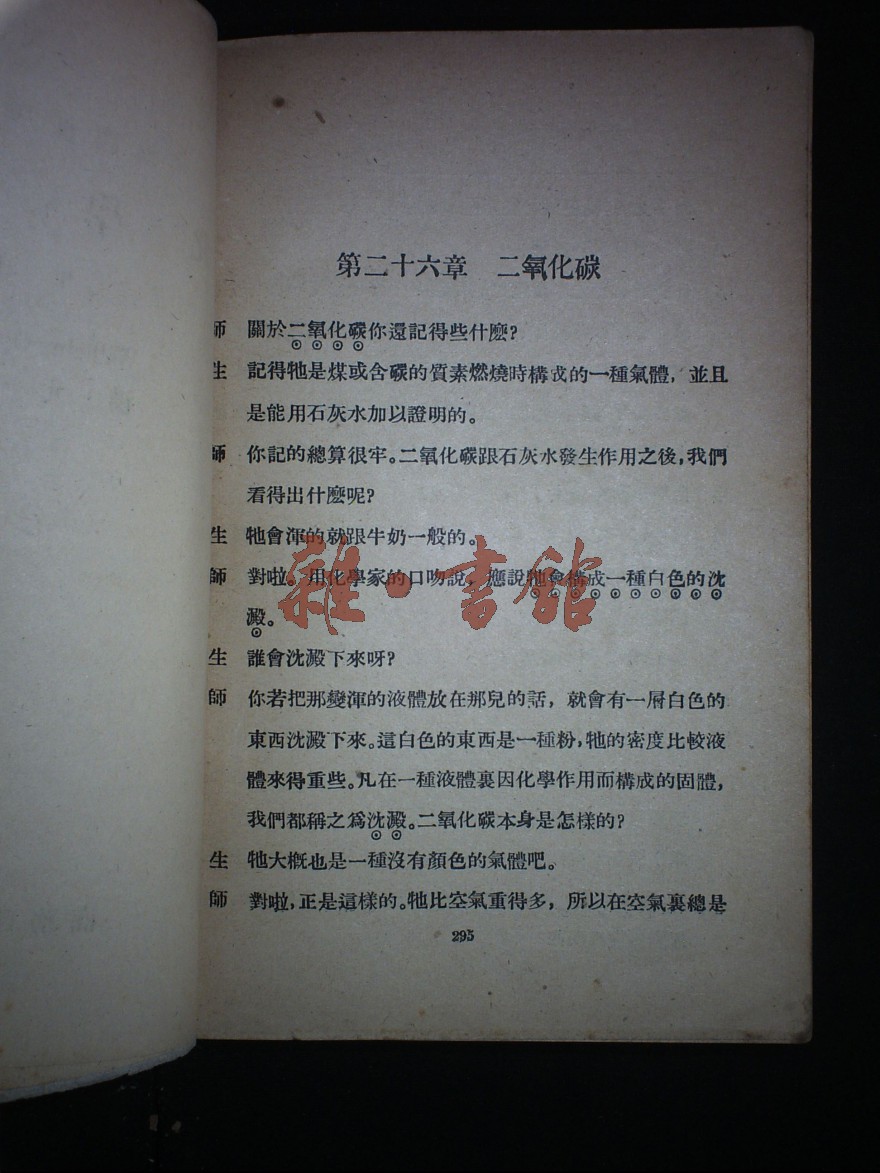 第二十六章　二氧化碳
師　關於二氧化碳你還記得些什麽?
生　記得牠是煤或含碳的質素燃燒時構成的一種氣體，並且
是能用石灰水加以證明的。
師　你記的總算很牢。二氧化碳跟石灰水發生作用之後，我們
看得出什麽呢?
生　牠會渾的就跟牛奶一般的。
師　對啦。用化學家的口吻說，應說牠會構成一種白色的沈
澱。
生　誰會沈澱下來呀?
師　你若把那變渾的液體放在那兒的話，就會有一層白色的
東西沈澱下來。這白色的東西是一種粉，牠的密度比較液
體來得重些。凡在一種液體裏因化學作用而構成的固體，
我們都稱之爲沈澱。二氧化碳本身是怎樣的?
生　牠大概也是一種沒有顏色的氣體吧。
師　對啦，正是這樣的。牠比空氣重得多，所以在空氣裏總是
295
雜·書館